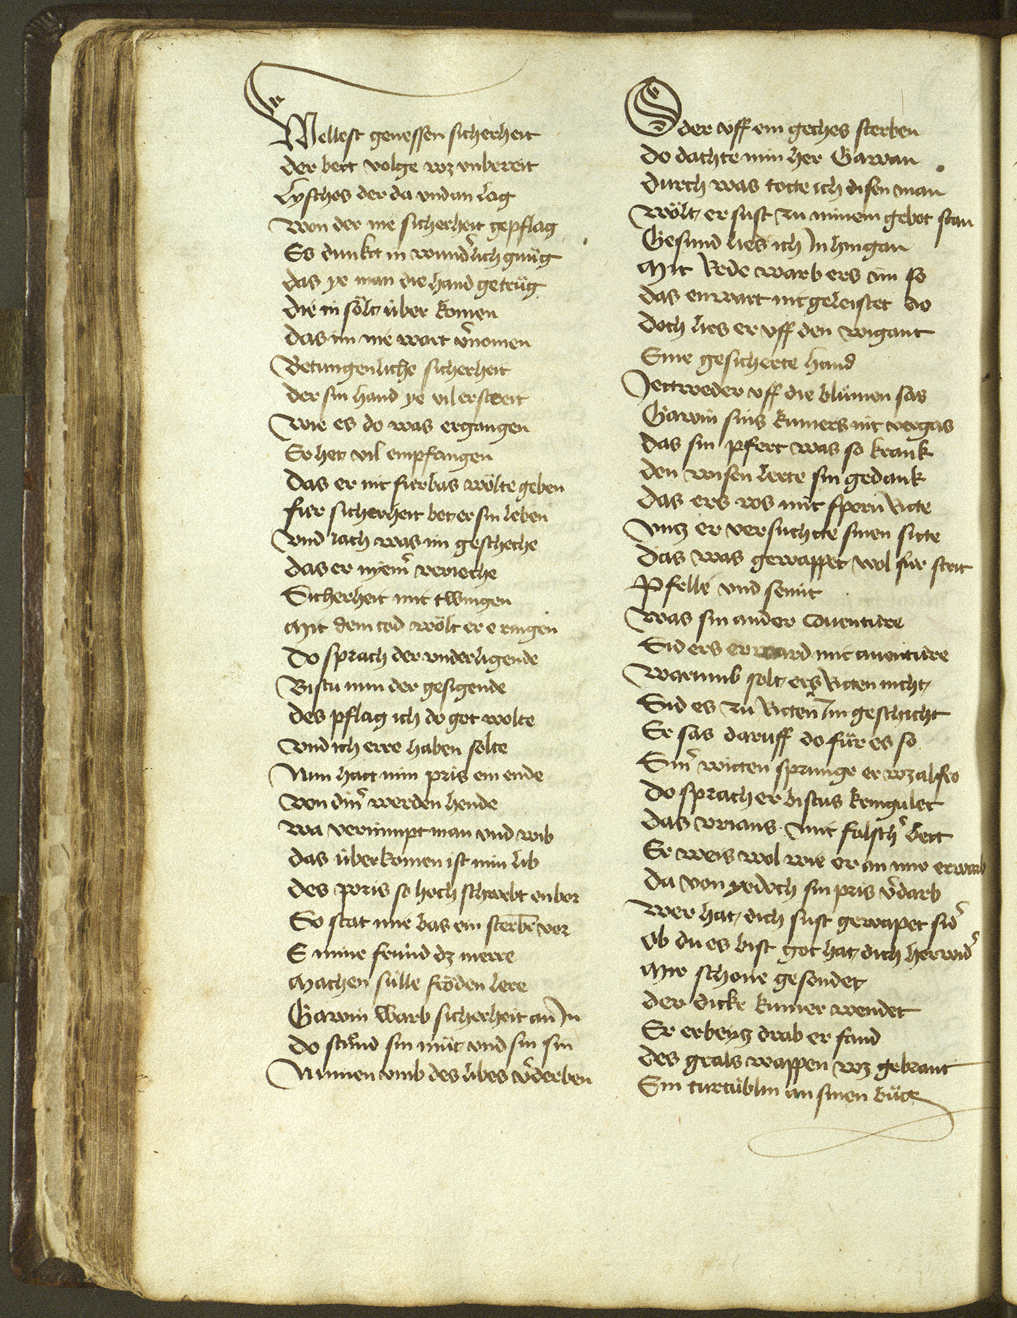 Wellest genessen sicherheit
der bett volge wz vnbereit
Lyschos der da vndan lag
Won der nie sicherheit gepflag
Es dunkt in wundˀlich gnůg
das ye man die hand getrůg
die in sölt über komen
das im nie wart vˀnomen
Betungenliche sicherheit
der sin hand ye vil erstreit
Wie es do was ergangen
Er het vil empfangen
Das er nit fürbas wölte geben
für sicherheit bet er sin leben
Vnd iach was im geschehe
das er nyemˀ veriehe
Sicherheit mit twingen
Mit dem tod wölt er e ringen
Do sprach der vnderligende
Bistu nun der gesigende
des pflag ich do got wolte
Vnd ich erre haben solte
Nun hatt min pris ein ende
Von dinˀ werden hende
Wa vernimpt man vnd wib
das überkomen ist min lib
des pris so hoch schwebt enbor
So stat mir bas ein sterbē vor
E mine fründ dz merre
Machen sülle fröden lere
Gawin warb sicherheit an In
do stůnd sin můt vnd sin sin
Nunnen vmb des libes vˀderben
Oder vff ein gehes sterben
do dachte min her Gawan
durch was totte ich disen man
Wölt er sust zu minem gebot stan
Gesund lies ich In hingan
Mit Rede warb ers im so
das enwart nit geleistet do
Doch lies er vff den wigant
Sine gesicherte hand
Jettweder vff die blůmen sas
Gawin sins kumers nit vergas
das sin pfert was so krank
den wisen lerte sin gedank
das ers ros mit sporn ritte
Vntz er versuchtte sinen sitte
Das was gewappet wol für streit
Pfelle vnd semit
Was sin ander couenture
Sid ers erward mit auenture
Warumb solt ers ritten nicht
Sid es zu ritten Im geschicht
Er sas daruff do für es so
Sinˀ witten sprunge er wz al fro
Do sprach er bistus kringulet
das vrians mit falschˀ bett
Er weis wol wie er an mir erwarb
Da von yedoch sin pris vˀdarb
Wer hat dich sust gewapet sidˀ
Ob du es bist got hat dich herwidˀ
Mir schone gesendet
der dicke kumer wendet
Er erbeyß drab er fand
des grals wappen wz gebrant
Ein turtüblin an sinen bůg